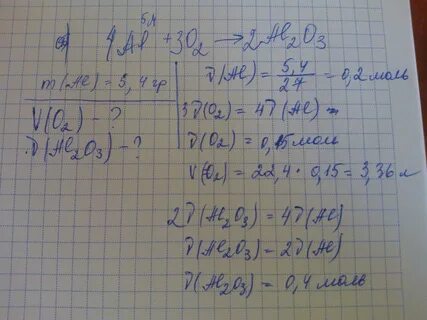 5,4
4Al + 3O₂ → 2Al₂O₃
m(Al) = 5,4 гр
V(O₂) - ?
ν(Al₂O₃) - ?
ν(Al) = 5,4/27 = 0,2 моль
3ν(O₂) = 4ν(Al) =
ν(O₂) = 0,15 моль
V(O₂) = 22,4 · 0,15 = 3,36 л
2ν(Al₂O₃) = 4ν(Al)
ν(Al₂O₃) = 2ν(Al)
ν(Al₂O₃) = 0,4 моль